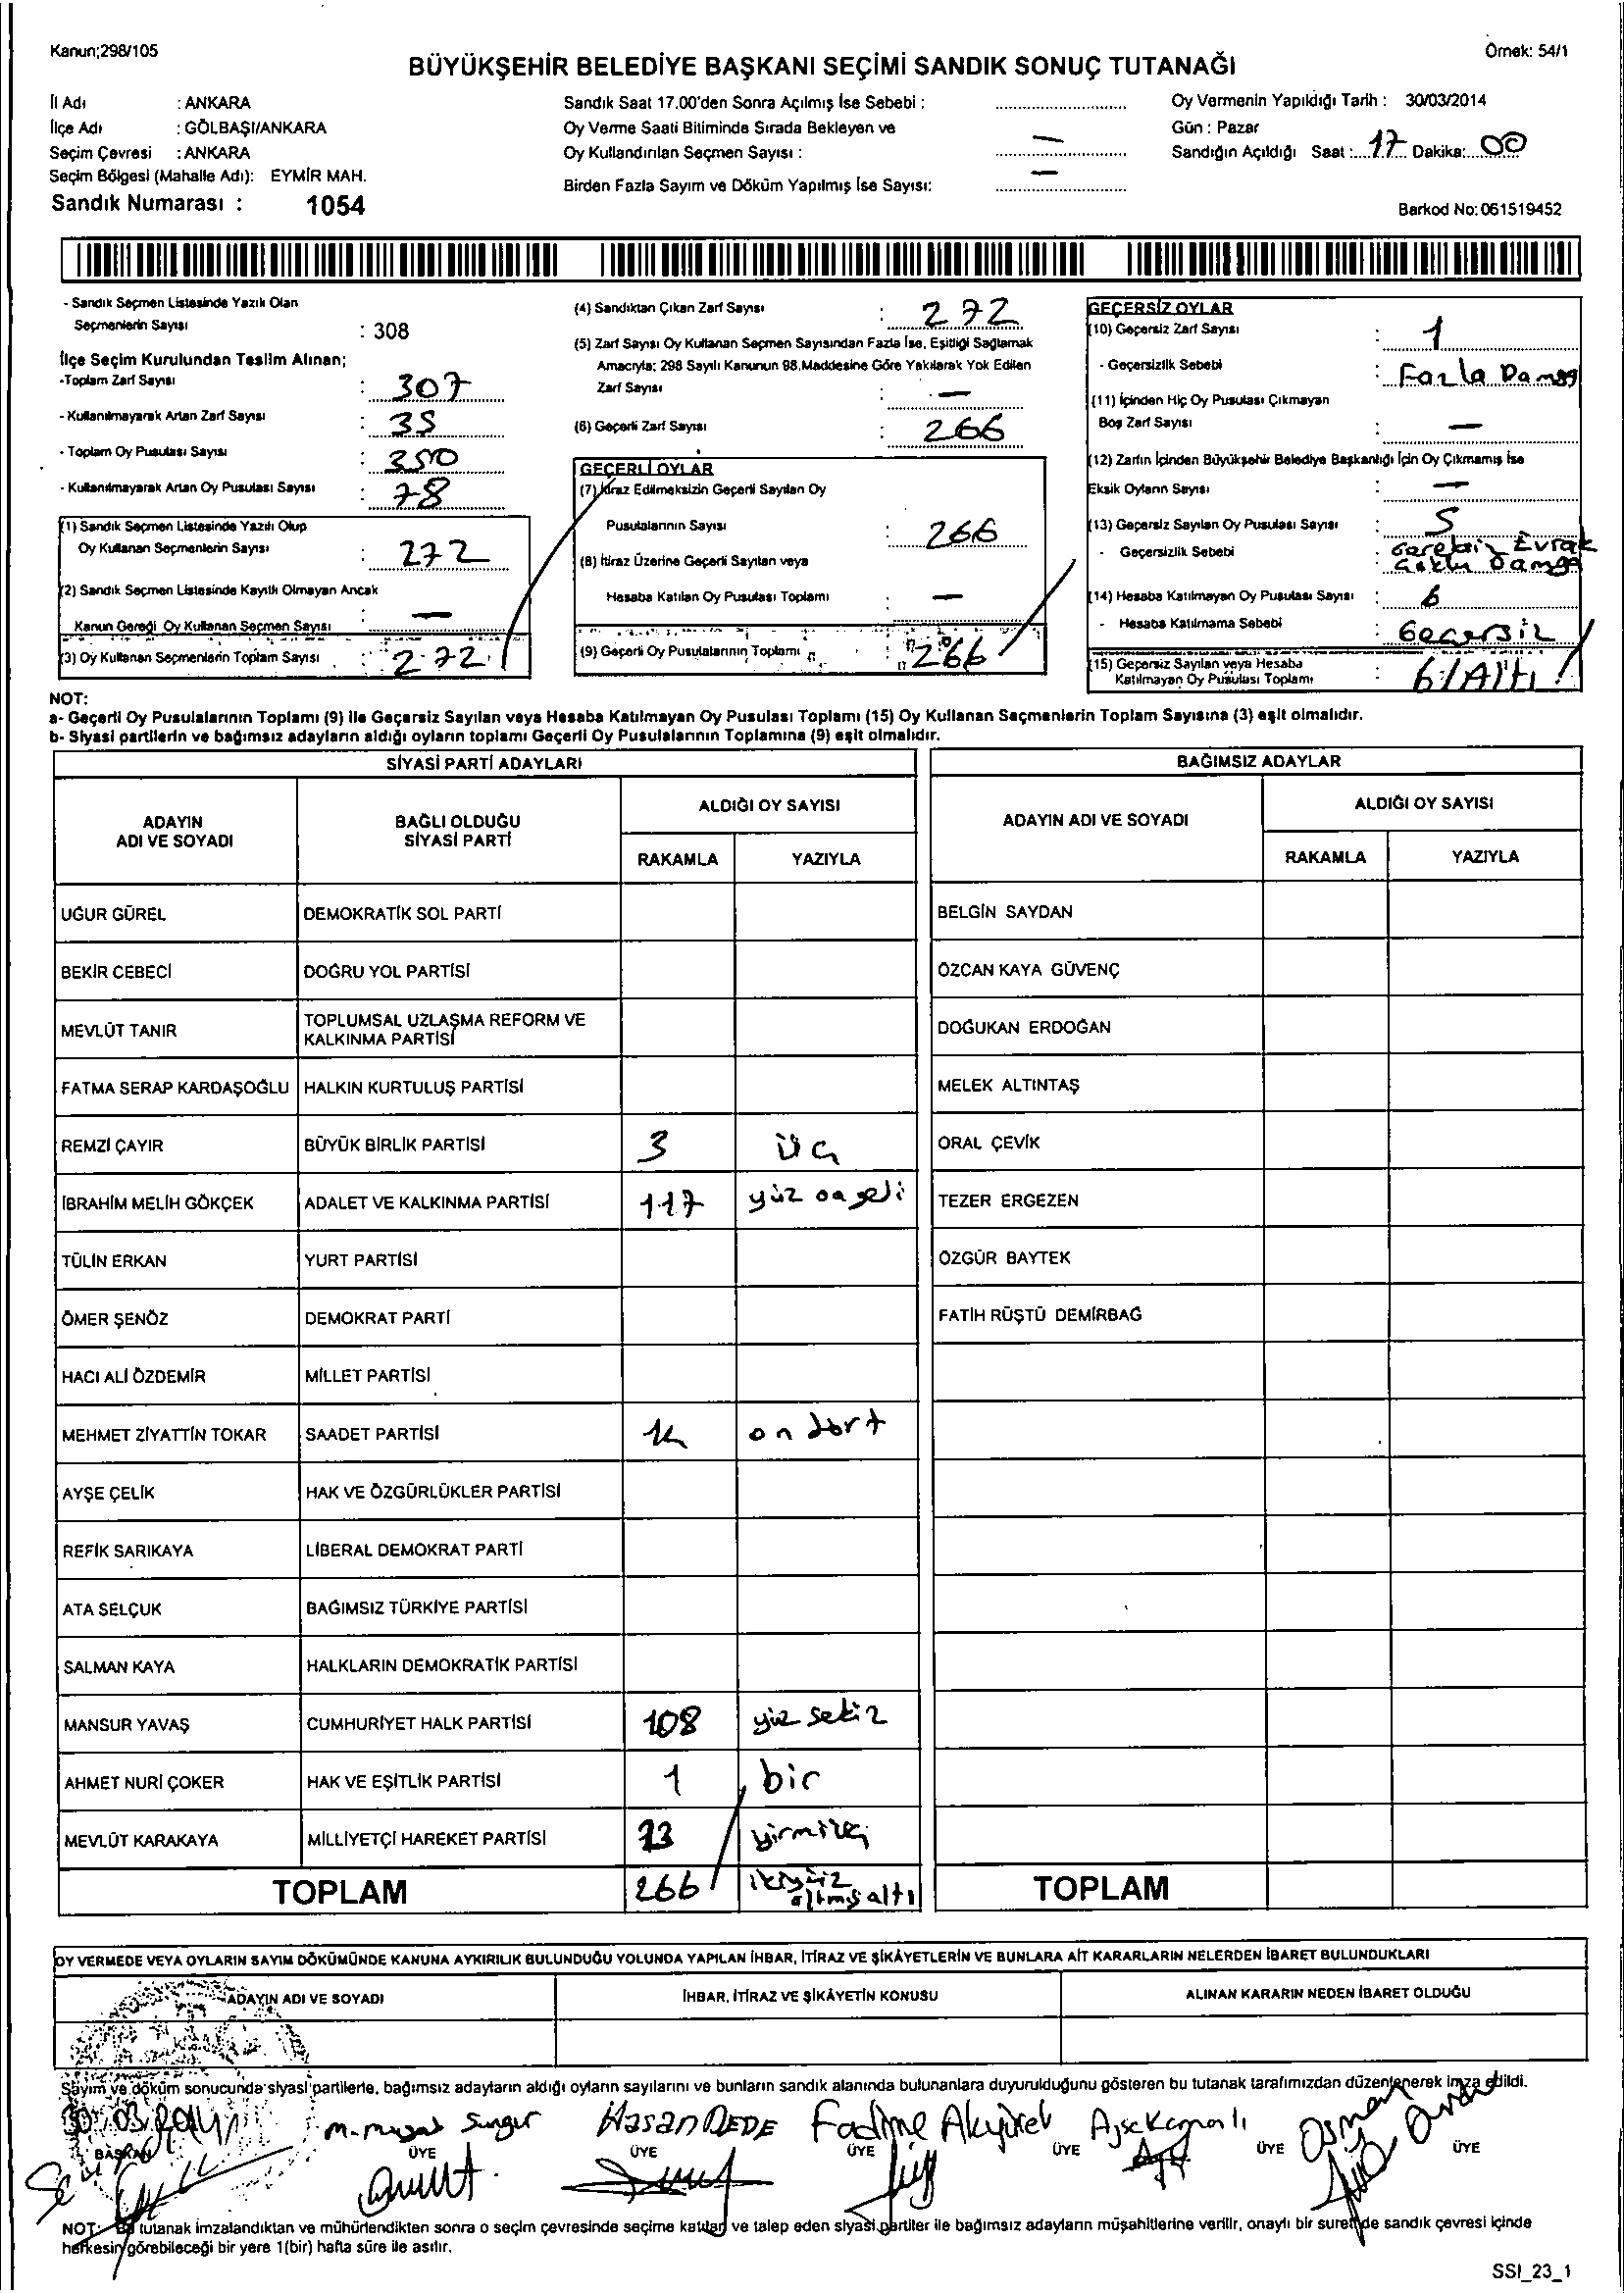 Kanun;298/105
Örnek: 54/1
BÜYÜKŞEHİR BELEDİYE BAŞKANI SEÇİMİ SANDIK SONUÇ TUTANAĞI
İl Adı : ANKARA
İlçe Adı : GÖLBAŞI/ANKARA
Seçim Çevresi : ANKARA
Seçim Bölgesi (Mahalle Adı): EYMİR MAH.
Sandık Numarası : 1054
Sandık Saat 17.00'den Sonra Açılmış İse Sebebi :
Oy Verme Saati Bitiminde Sırada Bekleyen ve
Oy Kullandırılan Seçmen Sayısı : —
Birden Fazla Sayım ve Döküm Yapılmış İse Sayısı: —
Oy Vermenin Yapıldığı Tarih : 30/03/2014
Gün : Pazar
Sandığın Açıldığı Saat : 17 Dakika: 00
Barkod No: 061519452
- Sandık Seçmen Listesinde Yazılı Olan
Seçmenlerin Sayısı : 308
İlçe Seçim Kurulundan Teslim Alınan;
-Toplam Zarf Sayısı : 307
- Kullanılmayarak Artan Zarf Sayısı : 35
- Toplam Oy Pusulası Sayısı : 350
- Kullanılmayarak Artan Oy Pusulası Sayısı : 78
(1) Sandık Seçmen Listesinde Yazılı Olup
Oy Kullanan Seçmenlerin Sayısı : 272
(2) Sandık Seçmen Listesinde Kayıtlı Olmayan Ancak
Kanun Gereği Oy Kullanan Seçmen Sayısı : —
(3) Oy Kullanan Seçmenlerin Toplam Sayısı : 272
(4) Sandıktan Çıkan Zarf Sayısı : 272
(5) Zarf Sayısı Oy Kullanan Seçmen Sayısından Fazla İse, Eşitliği Sağlamak
Amacıyla; 298 Sayılı Kanunun 98.Maddesine Göre Yakılarak Yok Edilen
Zarf Sayısı : —
(6) Geçerli Zarf Sayısı : 266
GEÇERLİ OYLAR
(7) İtiraz Edilmeksizin Geçerli Sayılan Oy
Pusulalarının Sayısı : 266
(8) İtiraz Üzerine Geçerli Sayılan veya
Hesaba Katılan Oy Pusulası Toplamı : —
(9) Geçerli Oy Pusulalarının Toplamı : 266
GEÇERSİZ OYLAR
(10) Geçersiz Zarf Sayısı : 1
- Geçersizlik Sebebi : Fazla Damga
(11) İçinden Hiç Oy Pusulası Çıkmayan
Boş Zarf Sayısı : —
(12) Zarfın İçinden Büyükşehir Belediye Başkanlığı İçin Oy Çıkmamış İse
Eksik Oyların Sayısı : —
(13) Geçersiz Sayılan Oy Pusulası Sayısı : 5
- Geçersizlik Sebebi : Gereksiz Evrak
Damga
(14) Hesaba Katılmayan Oy Pusulası Sayısı : 6
- Hesaba Katılmama Sebebi : Geçersiz
(15) Geçersiz Sayılan veya Hesaba
Katılmayan Oy Pusulası Toplamı : 6/Altı
NOT:
a- Geçerli Oy Pusulalarının Toplamı (9) ile Geçersiz Sayılan veya Hesaba Katılmayan Oy Pusulası Toplamı (15) Oy Kullanan Seçmenlerin Toplam Sayısına (3) eşit olmalıdır.
b- Siyasi partilerin ve bağımsız adayların aldığı oyların toplamı Geçerli Oy Pusulalarının Toplamına (9) eşit olmalıdır.
SİYASİ PARTİ ADAYLARI
ADAYIN ADI VE SOYADI
BAĞLI OLDUĞU SİYASİ PARTİ
ALDIĞI OY SAYISI
RAKAMLA YAZIYLA
UĞUR GÜREL DEMOKRATİK SOL PARTİ
BEKİR CEBECİ DOĞRU YOL PARTİSİ
MEVLÜT TANIR TOPLUMSAL UZLAŞMA REFORM VE
KALKINMA PARTİSİ
FATMA SERAP KARDAŞOĞLU HALKIN KURTULUŞ PARTİSİ
REMZİ ÇAYIR BÜYÜK BİRLİK PARTİSİ 3 üç
İBRAHİM MELİH GÖKÇEK ADALET VE KALKINMA PARTİSİ 117 yüz onyedi
TÜLİN ERKAN YURT PARTİSİ
ÖMER ŞENÖZ DEMOKRAT PARTİ
HACI ALİ ÖZDEMİR MİLLET PARTİSİ
MEHMET ZİYATTİN TOKAR SAADET PARTİSİ 14 on dört
AYŞE ÇELİK HAK VE ÖZGÜRLÜKLER PARTİSİ
REFİK SARIKAYA LİBERAL DEMOKRAT PARTİ
ATA SELÇUK BAĞIMSIZ TÜRKİYE PARTİSİ
SALMAN KAYA HALKLARIN DEMOKRATİK PARTİSİ
MANSUR YAVAŞ CUMHURİYET HALK PARTİSİ 108 yüz sekiz
AHMET NURİ ÇOKER HAK VE EŞİTLİK PARTİSİ 1 bir
MEVLÜT KARAKAYA MİLLİYETÇİ HAREKET PARTİSİ 23 yirmiüç
TOPLAM 266 ikiyüz
altmışaltı
BAĞIMSIZ ADAYLAR
ADAYIN ADI VE SOYADI
ALDIĞI OY SAYISI
RAKAMLA YAZIYLA
BELGİN SAYDAN
ÖZCAN KAYA GÜVENÇ
DOĞUKAN ERDOĞAN
MELEK ALTINTAŞ
ORAL ÇEVİK
TEZER ERGEZEN
ÖZGÜR BAYTEK
FATİH RÜŞTÜ DEMİRBAĞ
TOPLAM
OY VERMEDE VEYA OYLARIN SAYIM DÖKÜMÜNDE KANUNA AYKIRILIK BULUNDUĞU YOLUNDA YAPILAN İHBAR, İTİRAZ VE ŞİKÂYETLERİN VE BUNLARA AİT KARARLARIN NELERDEN İBARET BULUNDUKLARI
ADAYIN ADI VE SOYADI İHBAR, İTİRAZ VE ŞİKÂYETİN KONUSU ALINAN KARARIN NEDEN İBARET OLDUĞU
Sayım ve döküm sonucunda siyasi partilerle, bağımsız adayların aldığı oyların sayılarını ve bunların sandık alanında bulunanlara duyurulduğunu gösteren bu tutanak tarafımızdan düzenlenerek imza edildi.
30.03.2014 Hasan DEDE Fadime Akyürek Ayşe Kamalı Osman
BAŞKAN ÜYE ÜYE ÜYE ÜYE ÜYE ÜYE
NOT: Bu tutanak imzalandıktan ve mühürlendikten sonra o seçim çevresinde seçime katılan ve talep eden siyasi partiler ile bağımsız adayların müşahitlerine verilir, onaylı bir sureti de sandık çevresi içinde
herkesin görebileceği bir yere 1(bir) hafta süre ile asılır.
SSI_23_1